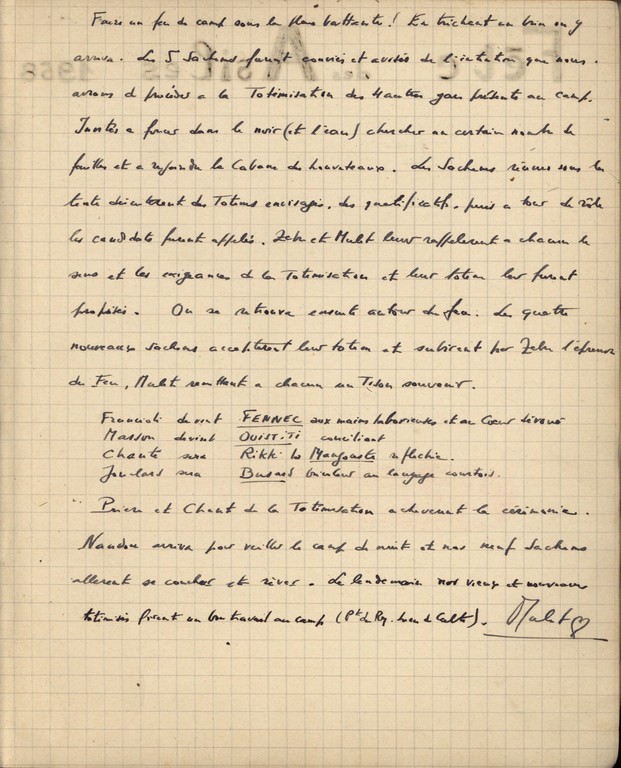 Faire un feu de camp sous la pluie battante ! En trichant un brin on y
arriva. Les 5 Sachems furent conviés et avisés de l'intention que nous
avions de procéder a la Totémisation des 4 autres gars présents au camp.
Invités a foncer dans le noir (et l'eau) chercher un certain nombre de
feuilles et a rejoindre la Cabane des Louveteaux. Les Sachems réunis sous la
tente discutèrent des Totems envisagés, des qualificatifs, puis a tour de rôle
les candidats furent appelés. Zebu et Mulot leur rappelèrent a chacun le
sens et les exigeances de la Totémisation et leur totem leur furent
proposés. On se retrouva ensuite autour du feu. Les quatre
nouveaux Sachems acceptèrent leur totem et subirent par Zebu l'épreuve
du Feu, Mulot remettant a chacun un Tison souvenir.
Francioli devient FENNEC aux mains laborieuses et au Cœur dévoué
Masson devint OUISTITI conciliant
Chante sera Rikki la Mangouste réfléchie.
sera Busard au langage courtois.
Prière et Chant de la Totémisation achevèrent la cérémonie.
arriva pour veiller le camp de nuit et nos neuf Sachems
allèrent se coucher et rêver. Le lendemain nos vieux et nouveaux
totémisés firent un bon travail au camp (Pt du Rey. Lieu de Culte). Mulot
Fête des Asiles 1968